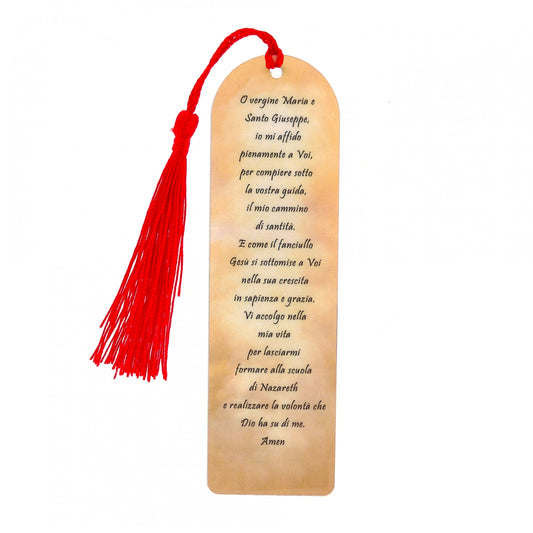 O vergine Maria e
Santo Giuseppe,
io mi affido
pienamente a Voi,
per compiere sotto
la vostra guida,
il mio cammino
di santità.
E come il fanciullo
Gesù si sottomise a Voi
nella sua crescita
in sapienza e grazia.
Vi accolgo nella
mia vita
per lasciarmi
formare alla scuola
di Nazareth
e realizzare la volontà che
Dio ha su di me.
Amen